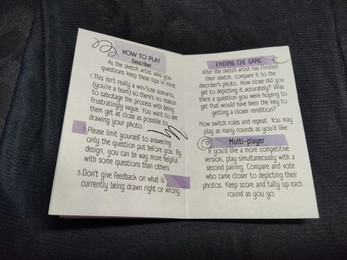 HOW TO PLAY
Describer
As the sketch artist asks you
questions keep these tips in mind.
1. This isn't really a win/lose scenario,
(you're a team) so there's no reason
to sabotage the process with being
frustratingly vague. You want to see
them get as close as possible to
drawing your photo.
2. Please limit yourself to answering
only the question put before you. By
design, you can be way more helpful
with some questions than others.
3. Don't give feedback on what is
currently being drawn right or wrong.
ENDING THE GAME
After the sketch artist has finished
their sketch, compare it to the
describer's photo. How close did you
get to depicting it accurately? Was
there a question you were hoping to
get that would have been the key to
getting a closer rendition?
Now switch roles and repeat. You may
play as many rounds as you'd like.
Multi-player
If you'd like a more competitive
version, play simultaneously with a
second pairing. Compare and vote
who came closer to depicting their
photos. Keep score and tally up each
round as you go.